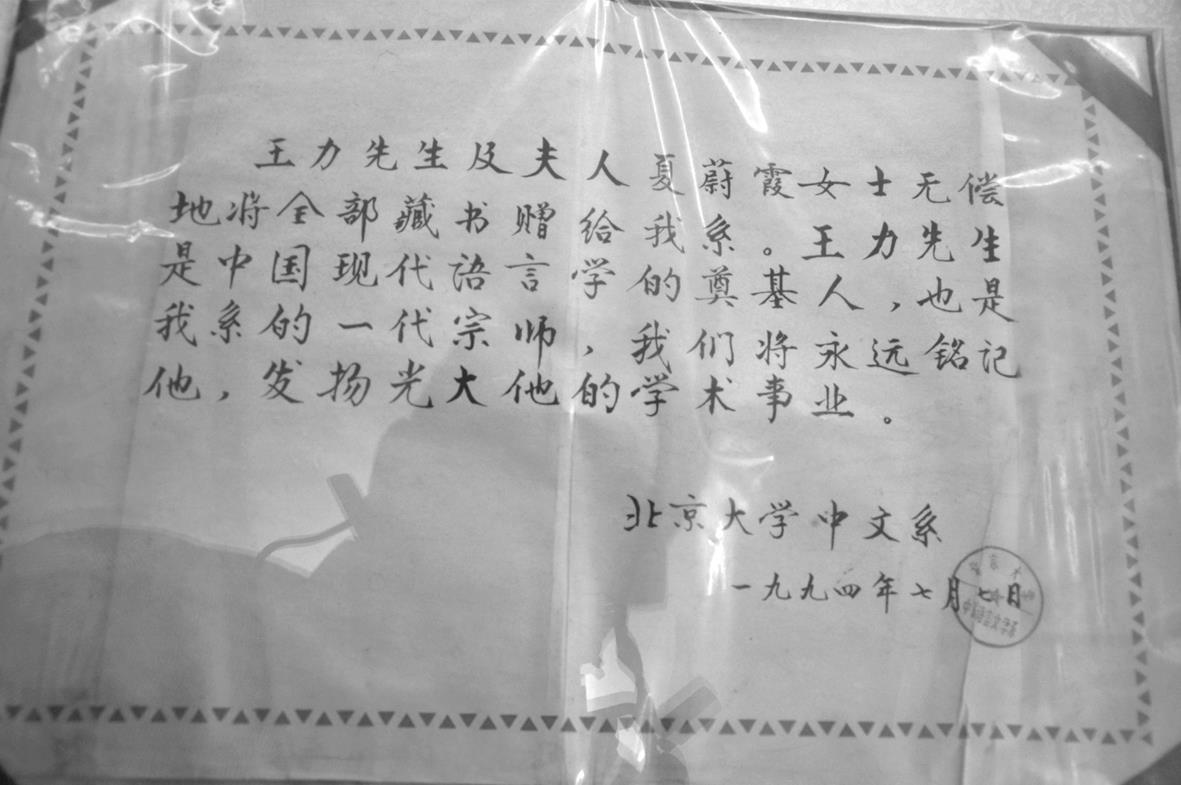 王力先生及夫人夏蔚霞女士无偿
地将全部藏书赠给我系。王力先生
是中国现代语言学的奠基人,也是
我系的一代宗师,我们将永远铭记
他,发扬光大他的学术事业。
北京大学中文系
一九九四年七月七日